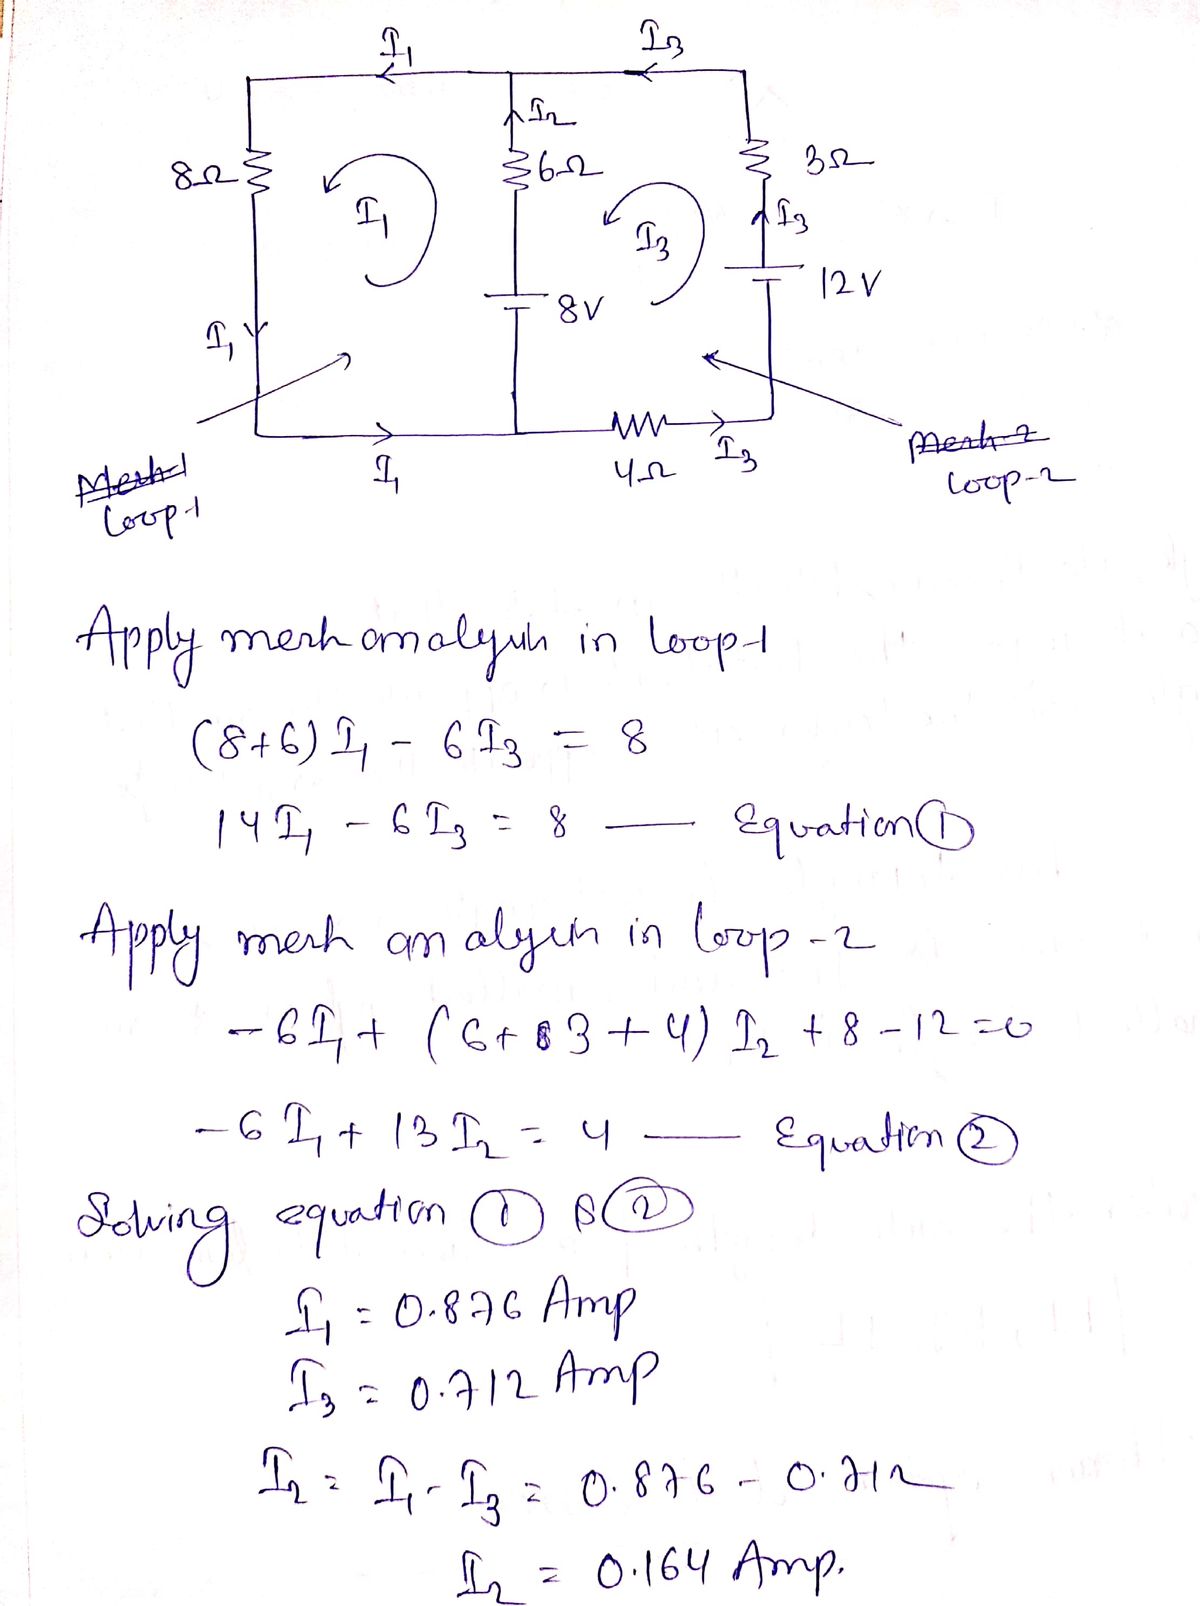 I₁ I₃
I₂
8Ω 6Ω 3Ω
I₁ I₃ I₃
12V
8V
I₁
I₁ 4Ω I₃
Mesh-1 Mesh-2
Loop-1 Loop-2
Apply mesh analysis in Loop-1
(8+6) I₁ - 6 I₃ = 8
14 I₁ - 6 I₃ = 8 — Equation ①
Apply mesh analysis in Loop-2
-6 I₁ + (6+3+4) I₂ + 8 - 12 = 0
-6 I₁ + 13 I₂ = 4 — Equation ②
Solving equation ① & ②
I₁ = 0.876 Amp
I₃ = 0.712 Amp
I₂ = I₁ - I₃ = 0.876 - 0.712
I₂ = 0.164 Amp.